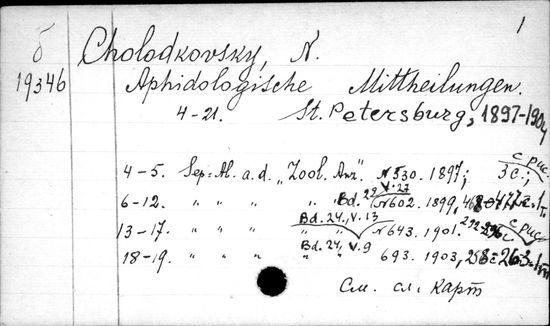 1
б Cholodkovsky, N.
19346 Aphidologische Mittheilungen.
4-21. St. Petersburg, 1897-1904
с рис.
4-5. Sep.=Ab. a. d. „Zool. Anz." N 530. 1897; 3 с.;
Bd. 22, V. 27
6-12. " " " " N 602. 1899, 468-477 с. 1 т.
Bd. 24, V. 13 292-296 с. с рис.
13-17. " " " " N 643. 1901.
Bd. 24, V. 9
18-19. " " " " 693. 1903, 258-263 = 1 т.
См. сл. карт